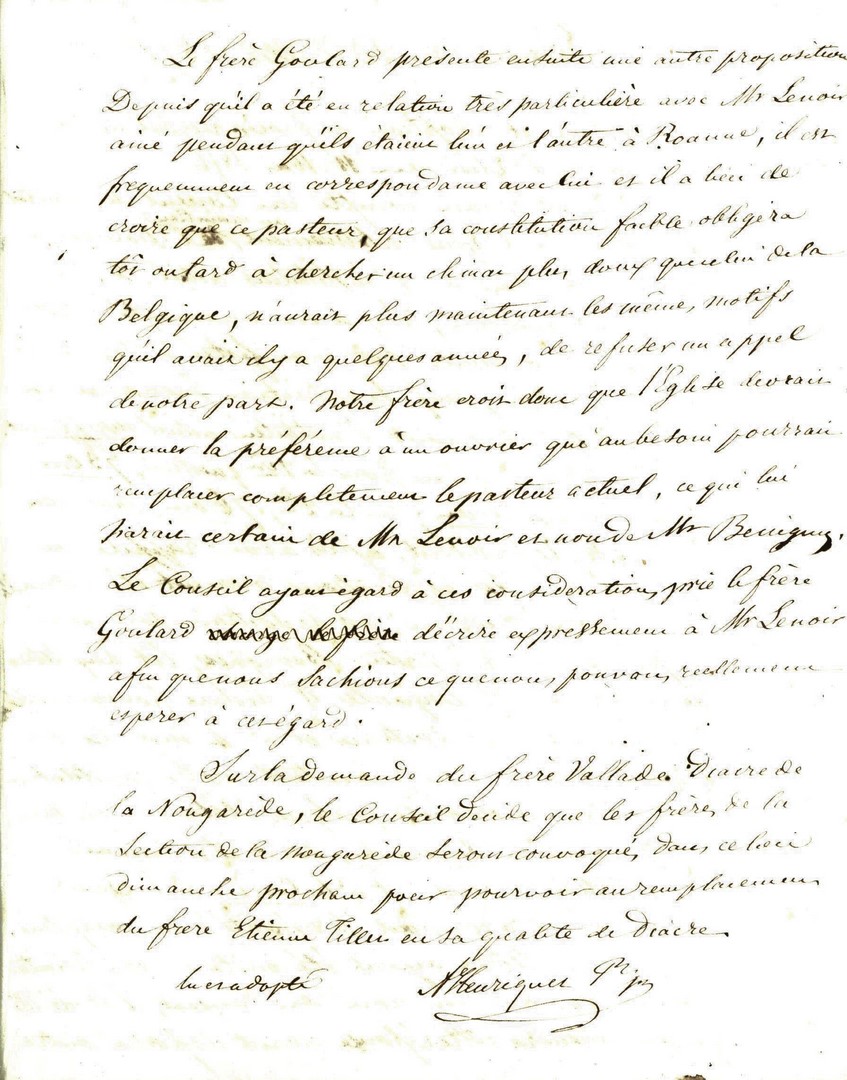 Le frère Goulard présente ensuite une autre proposition
Depuis qu'il a été en relation très particulière avec Mr Lenoir
ainé pendant qu'ils étaient l'un et l'autre à Roanne, il est
frequemment en correspondance avec lui et il a lieu de
croire que ce pasteur, que sa constitution faible obligera
tôt ou tard à chercher un climat plus doux que celui de la
Belgique, n'aurait plus maintenant les mêmes motifs
qu'il avait il y a quelques années, de refuser un appel
de notre part. Notre frère croit donc que l'Eglise devrait
donner la préférence à un ouvrier qui au besoin pourrait
remplacer completement le pasteur actuel, ce qui lui
parait certain de Mr Lenoir et non de Mr
Le Conseil ayant égard à ces considérations, prie le frère
Goulard d'écrire expressement à Mr Lenoir
afin que nous sachions ce que nous pouvons reellement
esperer à cet égard.
Sur la demande du frère Vallade Diacre de
la Nougarède, le Conseil decide que les frères de la
section de la Nougarède seront convoqués dans ce lieu
dimanche prochain pour pourvoir au remplacement
du frère Etienne en sa qualité de Diacre
lu et adopté A Henriquet